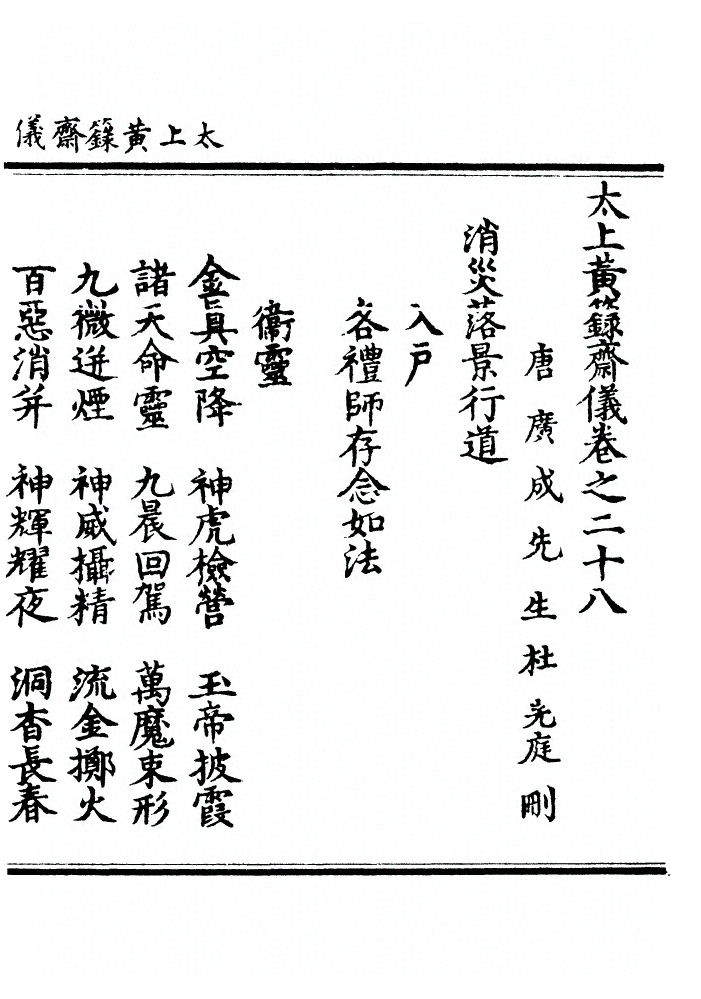 太上黃籙齋儀
太上黃籙齋儀卷之二十八
唐廣成先生杜光庭刪
消災落景行道
入戶
各禮師存念如法
衞靈
金真空降　神虎檢營　玉帝披霞
諸天命靈　九晨回駕　萬魔束形
九微迸煙　神威攝精　流金擲火
百惡消并　神輝耀夜　洞杳長春